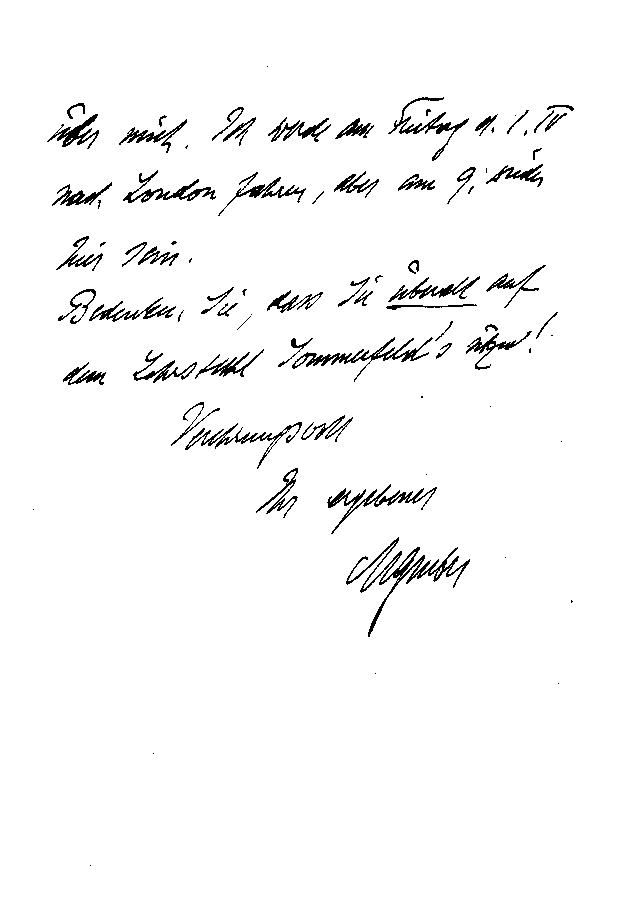 über mich. Ich werde am Freitag d. 1. IV
nach London fahren, aber am 9. wieder
hier sein.
Bedenken Sie, dass Sie überall auf
dem Lehrstuhl Sommerfeld's sitzen!
Verehrungsvoll
Ihr ergebener